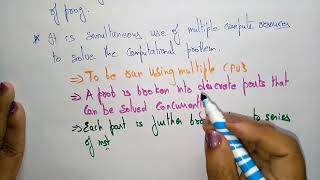 of prog.
* It is simultaneous use of multiple compute resources
to solve the computational problem.
⇒ To be run using multiple CPUs
⇒ A prob is broken into discrete parts that
can be solved Concurrent
⇒ Each part is further bro to series
of inst